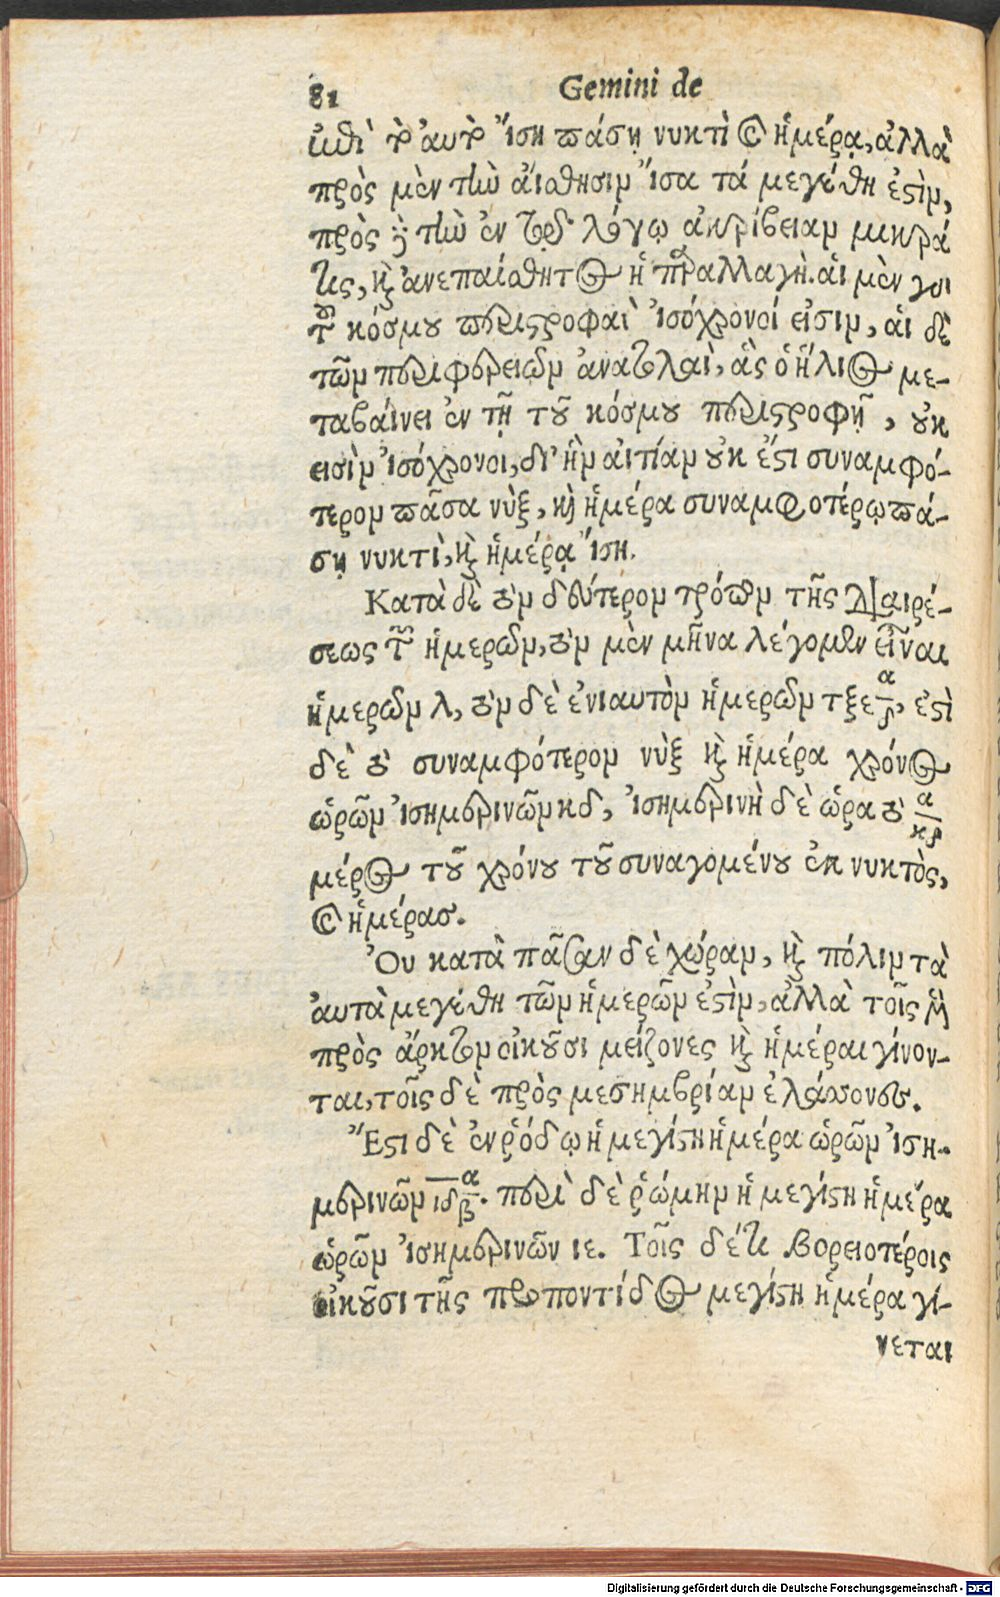 82 Gemini de
ἐστὶ διὰ ταῦτα ἴση πάσῃ νυκτὶ καὶ ἡμέρᾳ, ἀλλὰ
πρὸς μὲν τὴν ἄισθησιν ἴσα τά μεγέθη ἐστὶν,
πρὸς δὲ τὴν ἐν τῷ λόγῳ ἀκρίβειαν μικρά
τις, καὶ ἀνεπαίσθητος ἡ παραλλαγὴ. ἁι μὲν γὰρ
τοῦ κόσμου περιστροφαὶ ἰσόχρονοί εἰσιν, ἁι δὲ
τῶν περιφερειῶν ἀνατολαὶ, ἃς ὁ ἥλιος με-
ταβαίνει ἐν τῇ τοῦ κόσμου περιστροφῇ, οὐκ
εισὶν ἰσόχρονοι, δι' ἣν ἀιτίαν οὐκ ἔστι συναμφό-
τερον πᾶσα νὺξ, καὶ ἡμέρα συναμφοτέρῳ πά-
σῃ νυκτὶ, καὶ ἡμέρᾳ ἴση.
Κατὰ δὲ τὸν δεύτερον τρόπον τῆς διαιρέ-
σεως τῶν ἡμερῶν, τὸν μὲν μῆνα λέγομεν εἶναι
ἡμερῶν λ, τὸν δὲ ἐνιαυτὸν ἡμερῶν τξε α/δ, ἐστὶ
δὲ τὸ συναμφότερον νὺξ καὶ ἡμέρα χρόνος
ὡρῶν ἰσημερινῶν κδ, ἰσημερινὴ δὲ ὡρα τὸ α/κδ
μέρος τοῦ χρόνου τοῦ συναγομένου ἐκ νυκτὸς,
καὶ ἡμέρας.
Ὀυ κατὰ πᾶσαν δὲ χώραν, καὶ πόλιν τὰ
ἀυτὰ μεγέθη τῶν ἡμερῶν ἐστὶν, ἀλλὰ τοῖς μὲν
πρὸς ἄρκτον οἰκοῦσι μείζονες καὶ ἡμέραι γίνον-
ται, τοῖς δὲ πρὸς μεσημβρίαν ἐλάσσονες.
Ἔστι δὲ ἐν ῥόδῳ ἡ μεγίστη ἡμέρα ὡρῶν ἰση-
μερινῶν ιδ α/β. περὶ δὲ ῥώμην ἡ μεγίστη ἡμέρα
ὡρῶν ἰσημερινῶν ιε. Τοῖς δέ τε βορειοτέροις
οἰκοῦσι τῆς προποντίδος μεγίστη ἡμέρα γί-
νεται
Digitalisierung gefördert durch die Deutsche Forschungsgemeinschaft - DFG